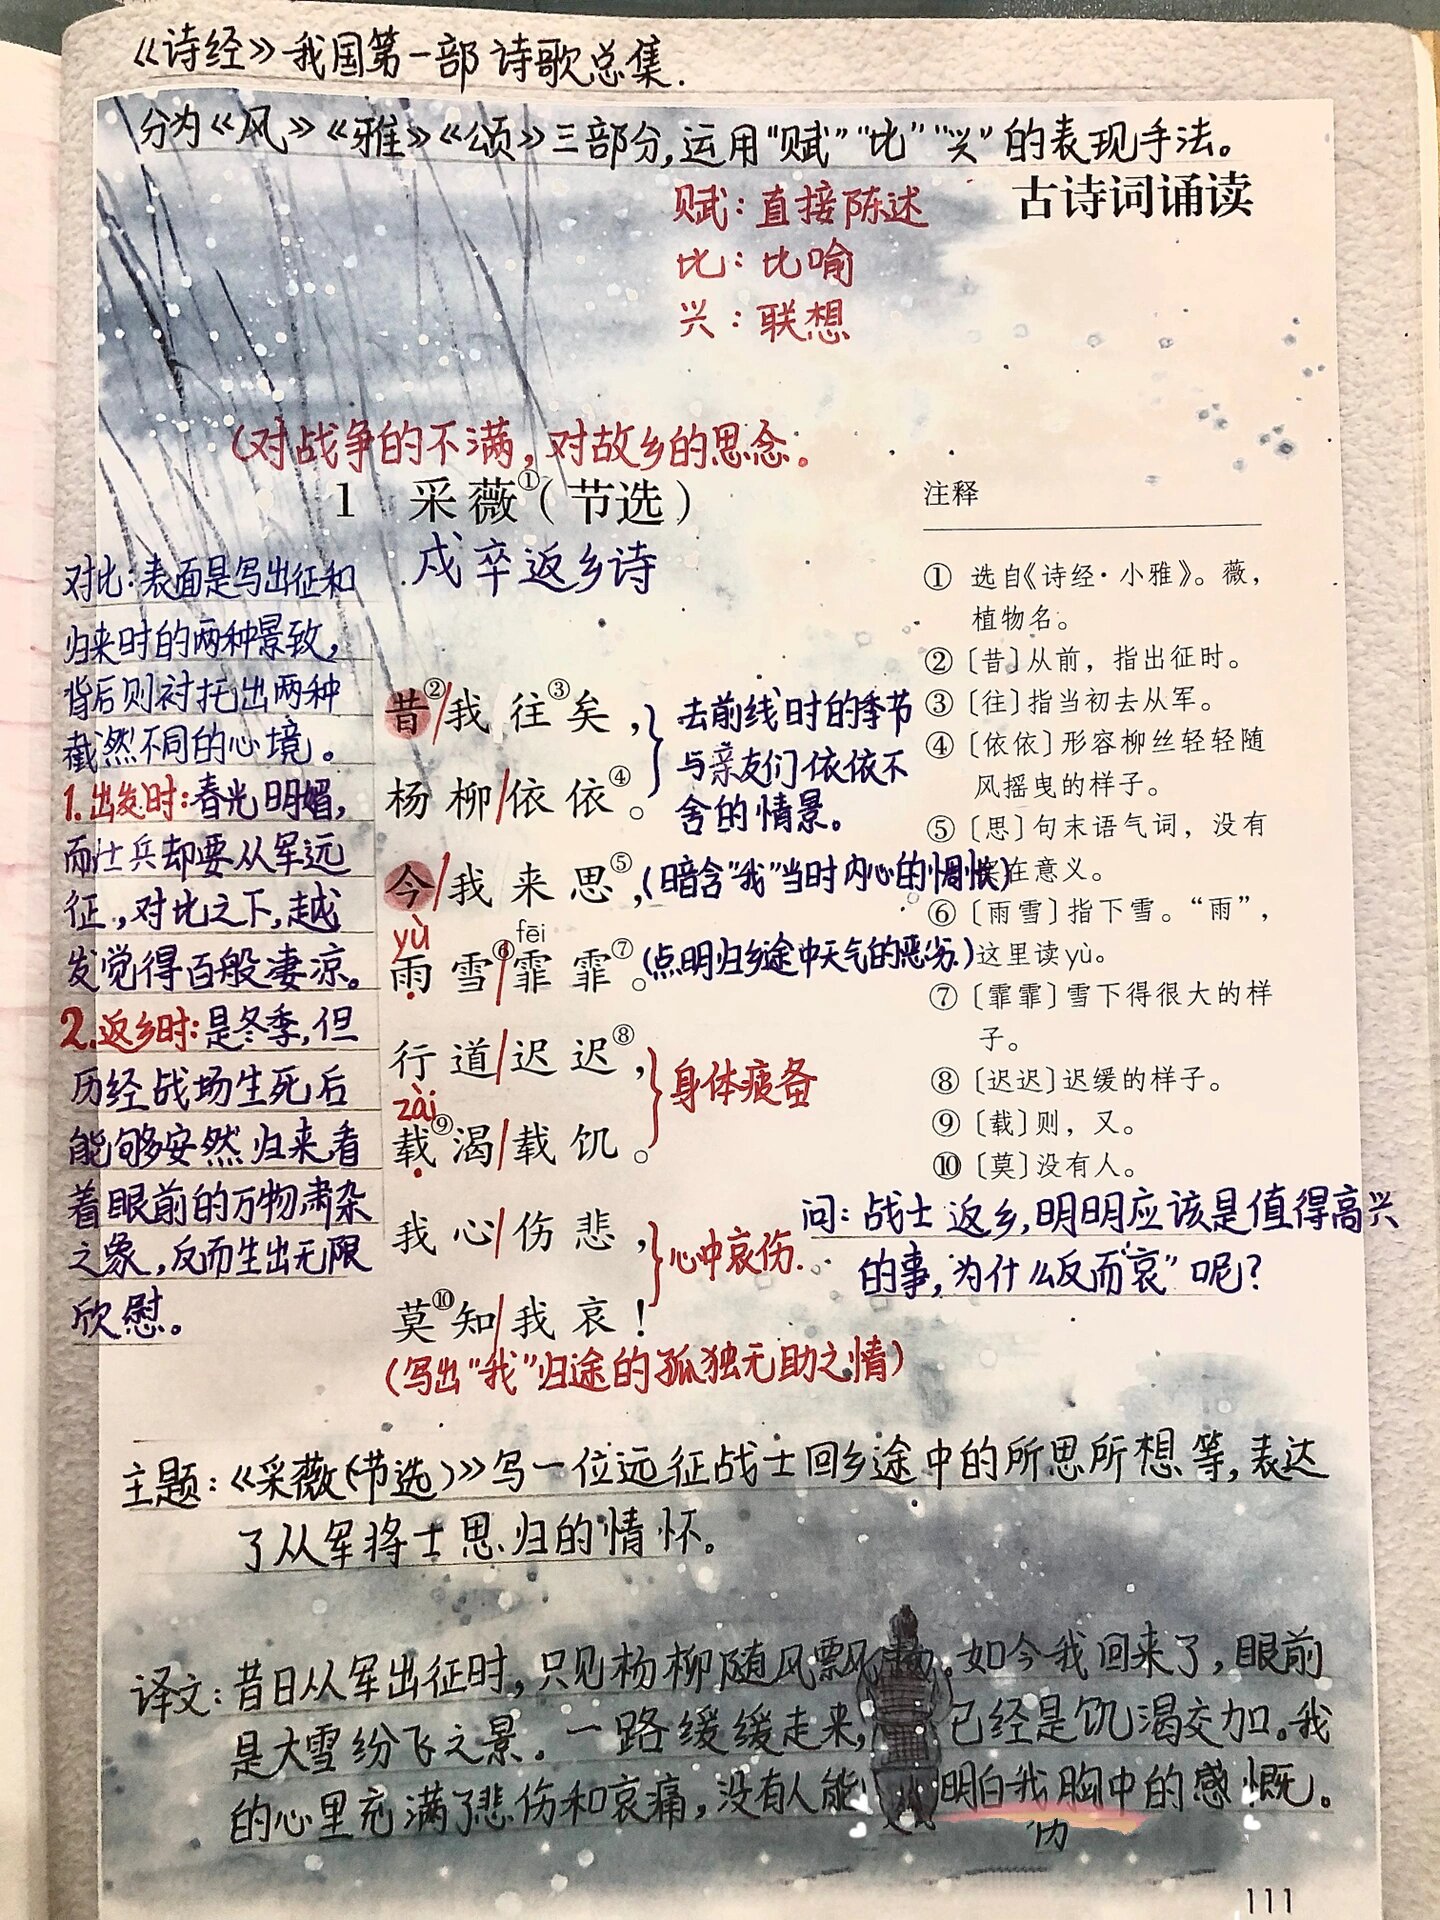 《诗经》我国第一部诗歌总集.
分为《风》《雅》《颂》三部分,运用"赋""比""兴"的表现手法。
古诗词诵读
赋：直接陈述
比：比喻
兴：联想
(对战争的不满,对故乡的思念。
1 采薇①(节选)
戍卒返乡诗
对比:表面是写出征和
归来时的两种景致,
背后则衬托出两种
截然不同的心境。
1.出发时:春光明媚,
而士兵却要从军远
征,对比之下,越
发觉得百般凄凉。
2.返乡时:是冬季,但
历经战场生死后
能够安然归来看
着眼前的万物肃杂
之象,反而生出无限
欣慰。
昔②/我往③矣，
杨柳/依依④。
去前线时的季节
与亲友们依依不
舍的情景。
今/我来思⑤，(暗含"我"当时内心的惆怅)
yù fēi
雨雪⑥/霏霏⑦。(点明归乡途中天气的恶劣.)
行道/迟迟⑧，
zài
载⑨渴/载饥。
身体疲惫
我心/伤悲，
莫⑩知/我哀！
心中哀伤.
(写出"我"归途的孤独无助之情)
注释
① 选自《诗经·小雅》。薇，
植物名。
② 〔昔〕从前，指出征时。
③ 〔往〕指当初去从军。
④ 〔依依〕形容柳丝轻轻随
风摇曳的样子。
⑤ 〔思〕句末语气词，没有
在意义。
⑥ 〔雨雪〕指下雪。“雨”，
这里读yù。
⑦ 〔霏霏〕雪下得很大的样
子。
⑧ 〔迟迟〕迟缓的样子。
⑨ 〔载〕则，又。
⑩ 〔莫〕没有人。
问:战士返乡,明明应该是值得高兴
的事,为什么反而"哀"呢?
主题:《采薇(节选)》写一位远征战士回乡途中的所思所想等,表达
了从军将士思归的情怀。
译文:昔日从军出征时,只见杨柳随风飘。如今我回来了,眼前
是大雪纷飞之景。一路缓缓走来,已经是饥渴交加。我
的心里充满了悲伤和哀痛,没有人能明白我胸中的感慨。
伤
111